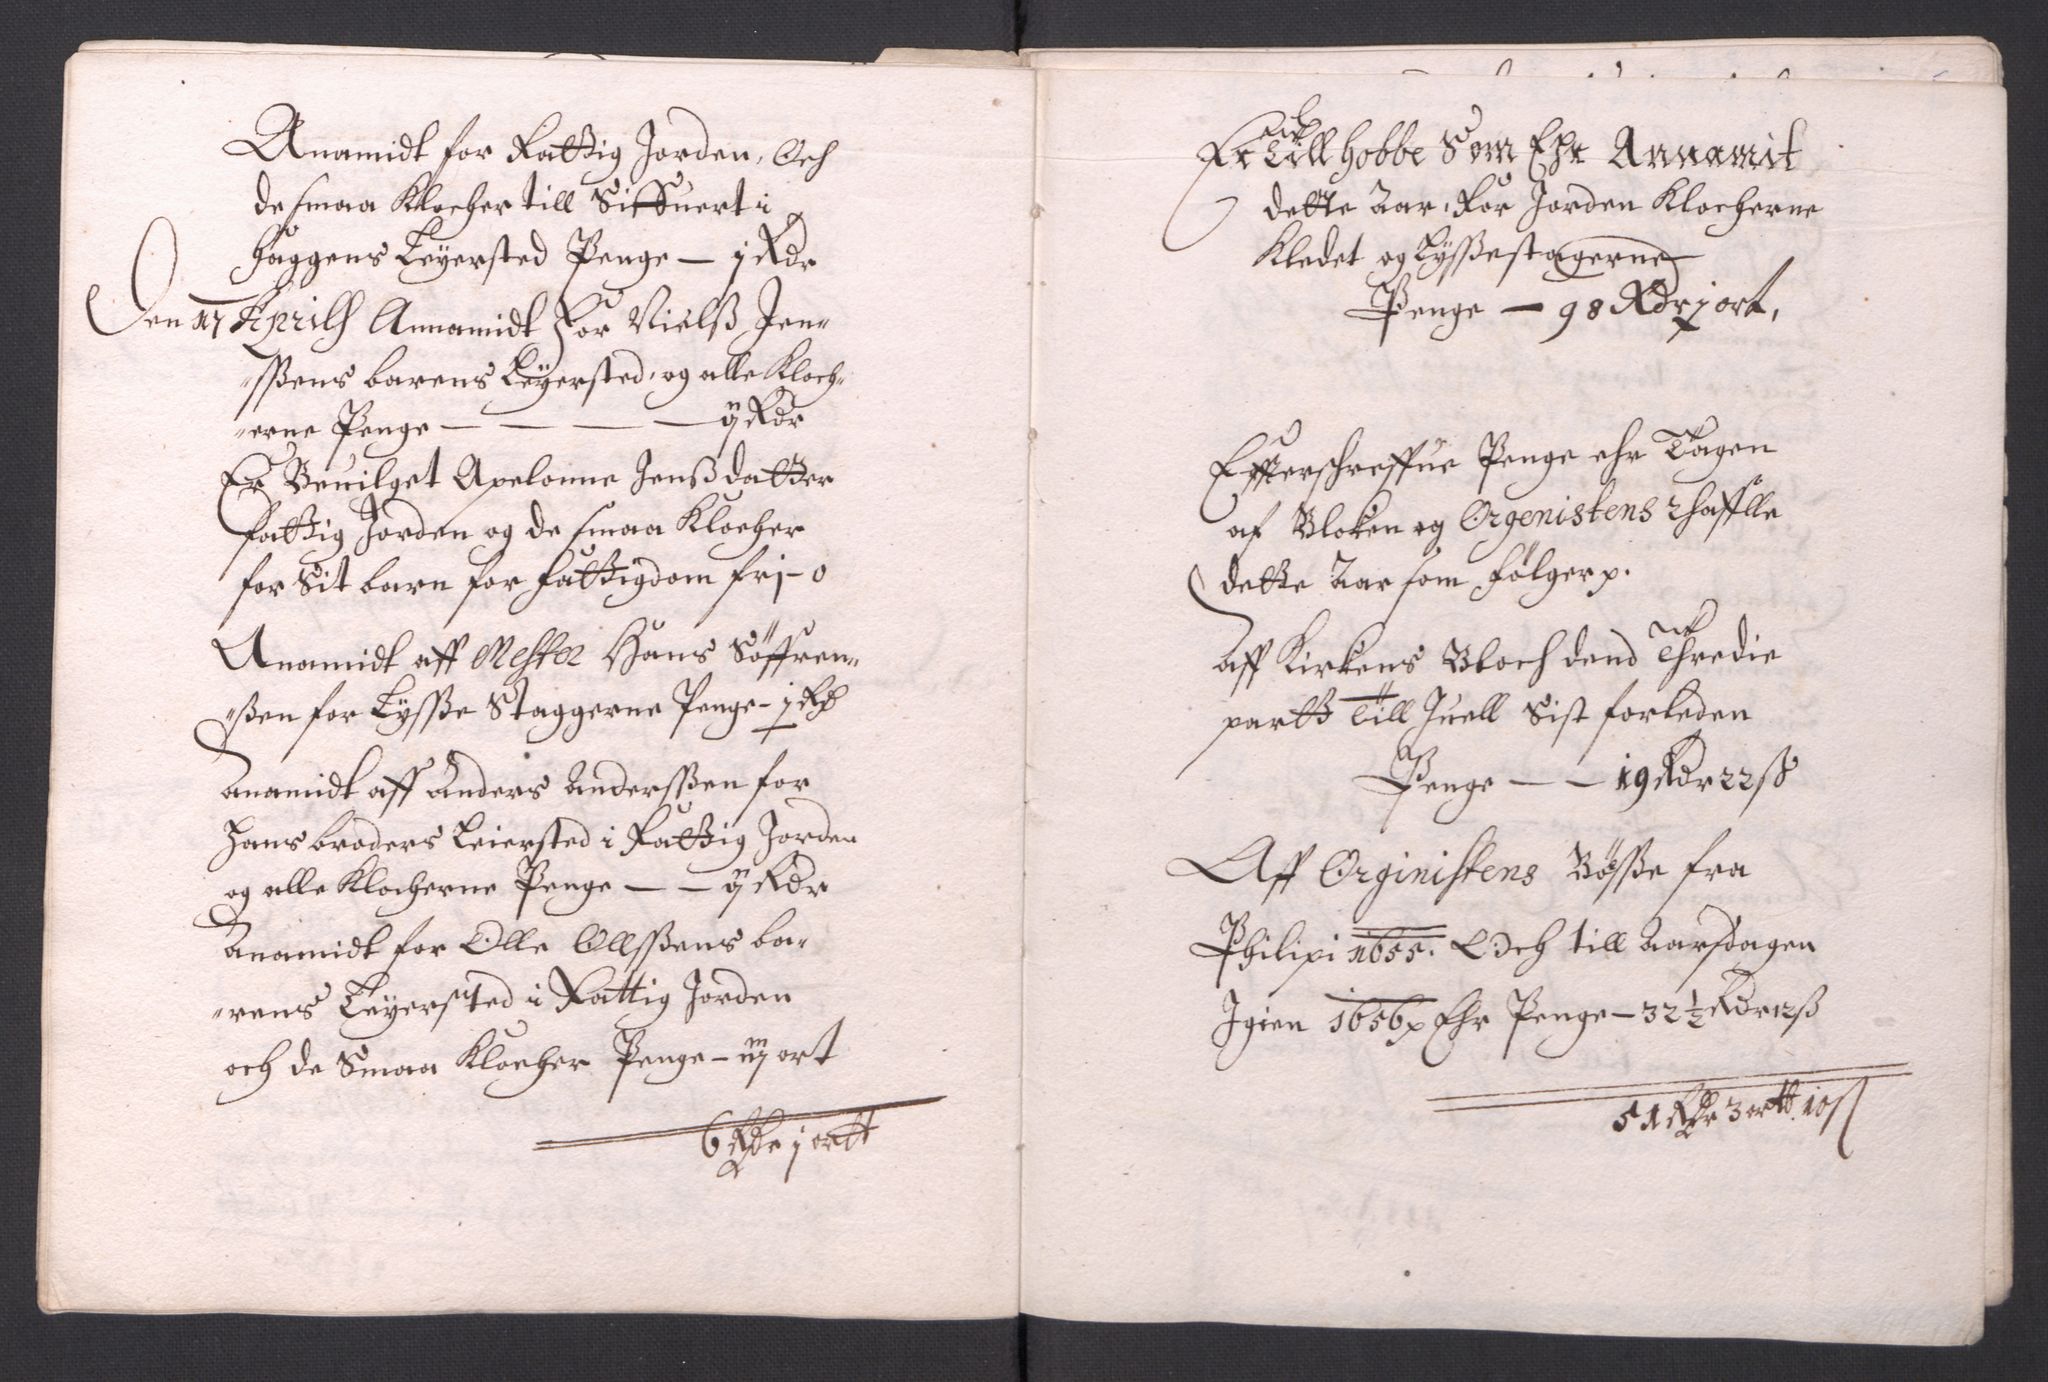 Anamidt for Fattig Jorden, Och
de smaa Klocher till Siffuert i
Haggens Leyersted Penge — j Rdr
Den 17 Aprilh Annamidt For Nielß Jen-
"ßens barens Leyersted, og alle Kloch-
"erne Penge — — — — ij Rdr
Er Beuilget Apelonne Jenßdatter
fattig Jorden og de smaa Klocher
for Sit barn for fattigdom frj - 0
Anamidt aff Mester Hans Söffren-
"ßen for Lysße Staggerne Penge - j Rd
Anamidt aff Anders Anderssen for
Hans broders Leiersted i Fattig Jorden
og alle Klocherne Penge — — ij Rdr
Anamidt for Olle Ollsßens ba-
"rens Leyersted i Fattig Jorden
och de Smaa Klocher Penge — iij ort
6 Rdr j ortt
Er till hobbe Som Ehr Annamit
dette Aar, For Jorden Klocherne
Kledet og Lysßestagerne
Penge — 98 Rdr j ort,
Effterschreffne Penge ehr Tagen
af Bloken og Orgenistens
dette Aar som følger p.
Aff Kirkens Bloch dend Thredie
partt Till Juell Sist forleden
Penge — — 19 Rdr 22 ß
Aff Orginistens Bösße fra
Philipi 1655. Och till Aarsdagen
Igien 1656 p Ehr Penge — 32 ½ Rdr 12 ß
51 Rdr 3 ortt 10 ß